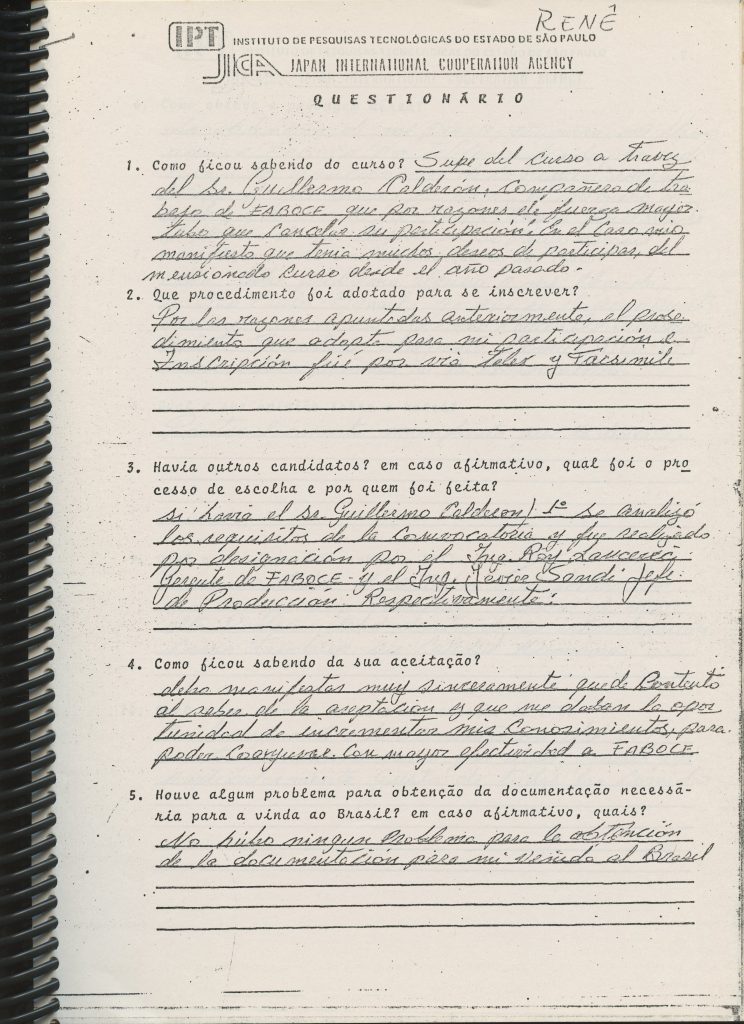 RENÊ
IPT INSTITUTO DE PESQUISAS TECNOLÓGICAS DO ESTADO DE SÃO PAULO
JICA JAPAN INTERNATIONAL COOPERATION AGENCY
QUESTIONÁRIO
1. Como ficou sabendo do curso? Supe del curso a travez
del Sr. Guillermo Calderón, Compañero de tra
bajo de FABOCE que por razones de fuerza mayor
tubo que cancelar su participación. En el Caso mio
manifiesto que tenia muchos deseos de participar, del
mensionado curso desde el año pasado.
2. Que procedimento foi adotado para se inscrever?
Por las razones apuntadas anteriormente, el prose
dimiento que adopte para mi participación e
Inscripción fué por via telex y Facsimile
3. Havia outros candidatos? em caso afirmativo, qual foi o pro
cesso de escolha e por quem foi feita?
si havia el Sr. Guillermo Calderon/ 1º se analizó
los requisitos de la convocatoria y fue realizado
por designación por el Ing. Roy
Gerente de FABOCE y el Ing. Javier Sandi Jefe
de Producción Respectivamente.
4. Como ficou sabendo da sua aceitação?
debo manifestar muy sinceramente quede Contento
al saber de la aseptación y que me daban la opor
tunidad de incrementar mis Conosimientos, para
poder Con mayor efectividad a FABOCE
5. Houve algum problema para obtenção da documentação necessá-
ria para a vinda ao Brasil? em caso afirmativo, quais?
No hubo ningun Problema para la obtención
de la documentación para mi venida al Brasil